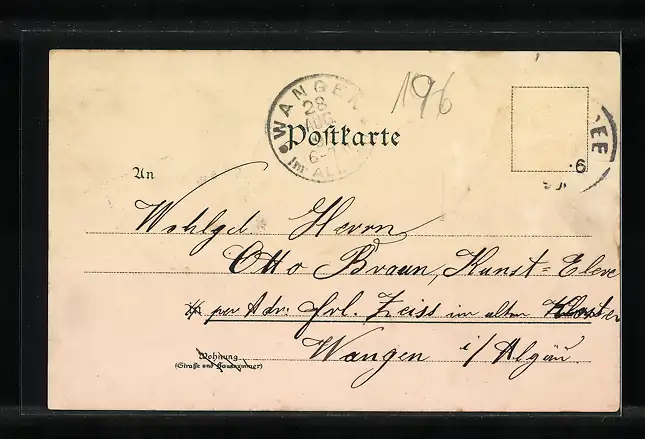 196
WANGEN
28
AUG.
6-7
Im ALL
Postkarte
EE
6
An
Wohlgd Herrn
Otto Braun, Kunst=Eleve
per Adr: Frl. Zeiss im alten Kloster
Wangen i/Algäu
Wohnung
(Straße und Hausnummer)